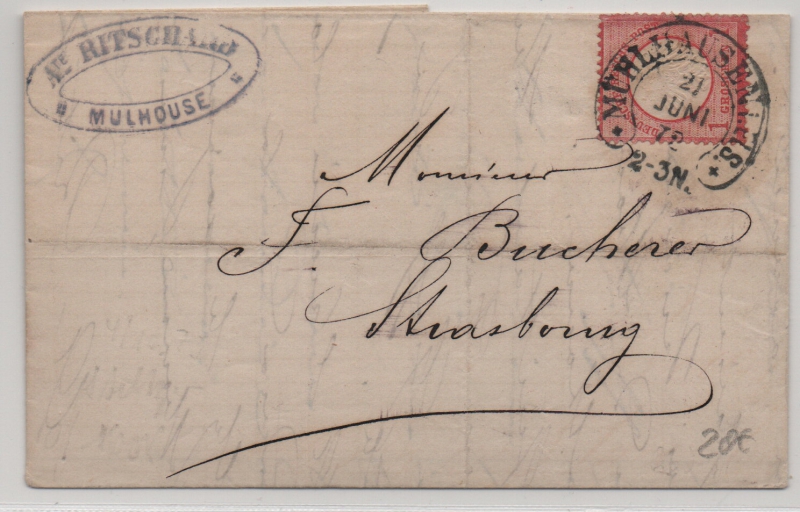 Ate RITSCHARD
MULHOUSE
1 GROSCHEN
MÜHLHAUSEN i. ELS.
21
JUNI
72
2-3N.
Monsieur
F. Bucherer
Strasbourg
28€